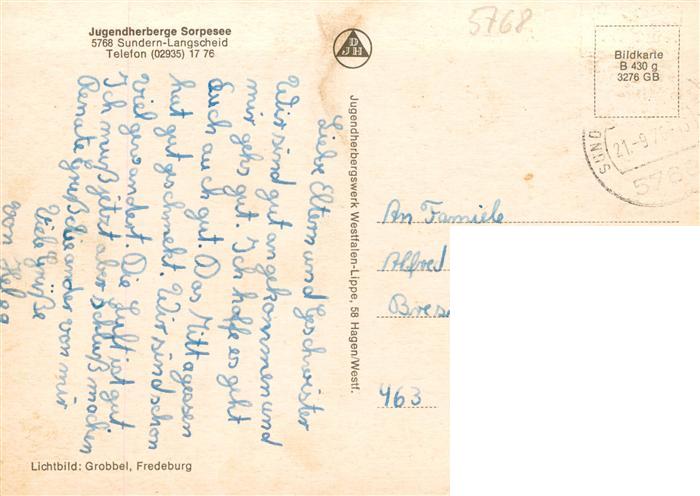 Jugendherberge Sorpesee
5768 Sundern-Langscheid
Telefon (02935) 17 76
DJH
5768
Bildkarte
B 430 g
3276 GB
21.-9
SUND
576
Liebe Eltern und Geschwister
Wir sind gut angekommen und
mir gehs gut. Ich hoffe es geht
Euch auch gut. Das Mittagessen
hat gut geschmekt. Wir sind schon
viel gewandert. Die Luft ist gut
Ich muß jetzt aber Schluß machen
Renate Grüß die ander von mir
Viele Grüße
von Helga
Jugendherbergswerk Westfalen-Lippe, 58 Hagen/Westf.
An Familie
Alfred
463
Lichtbild: Grobbel, Fredeburg